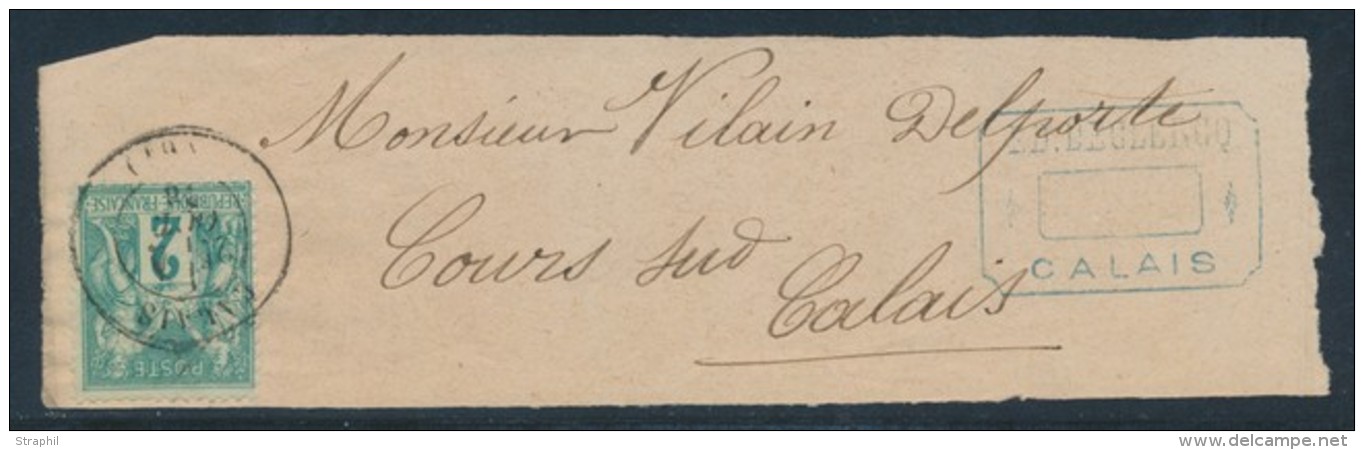 Monsieur Vilain Delporte
Cours sud
Calais
ED. DECLERCQ
CALAIS
REPUBLIQUE FRANCAISE
2
POSTE
CALAIS
Straphil
delcampe.net